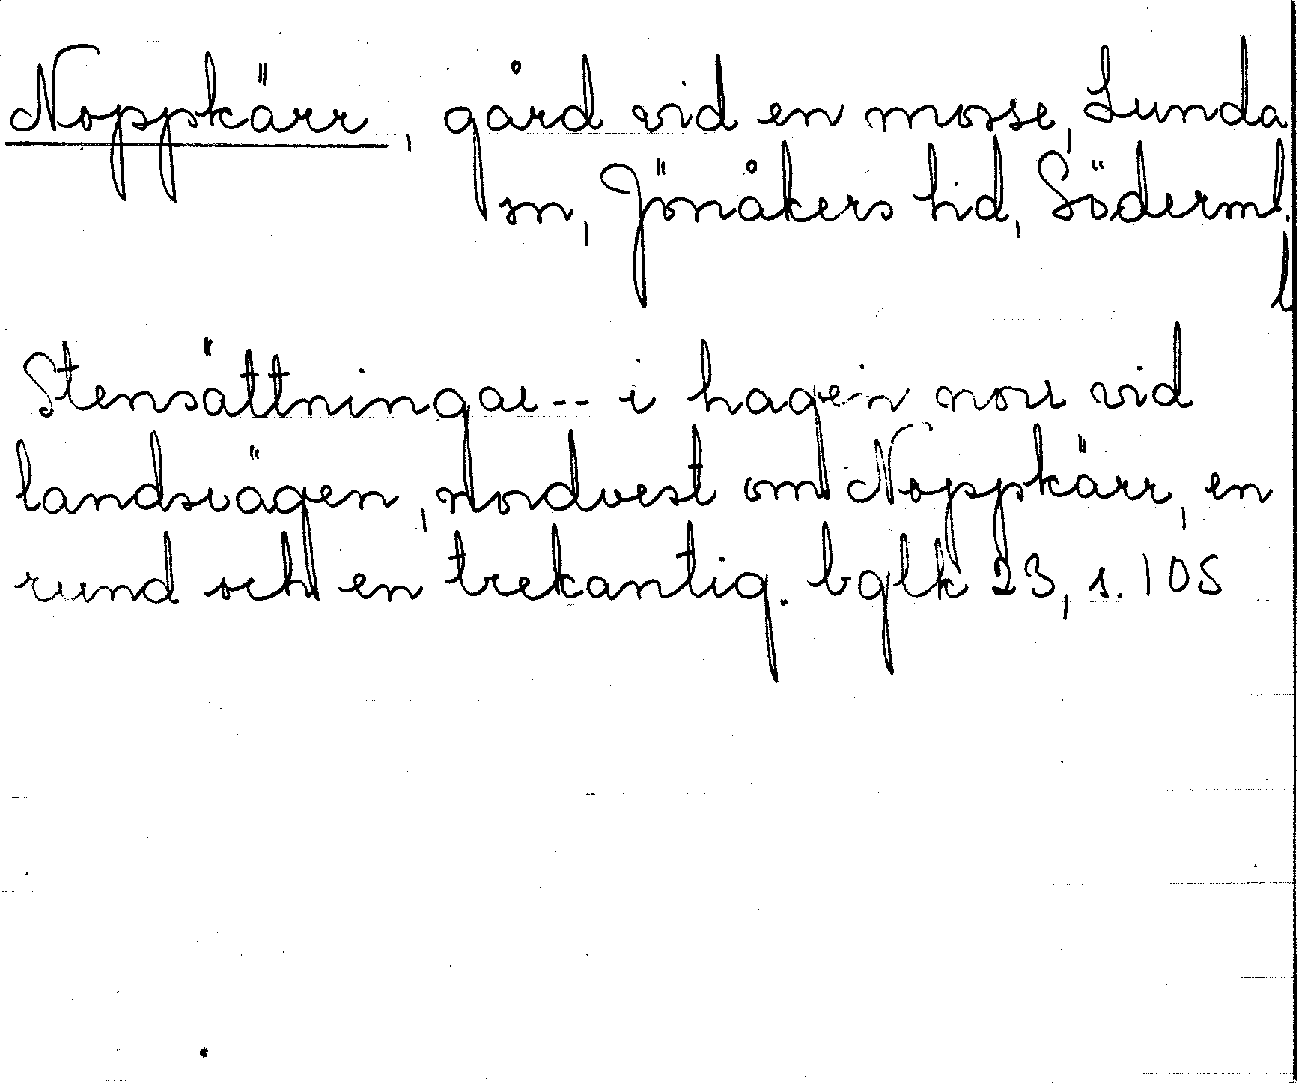 Noppkärr, gård vid en mosse, Lunda
sn, Jönåkers hd, Söderml.
l
Stensättningar -- i hagen norr vid
landsvägen, nordvest om Noppkärr, en
rund och en trekantig. bglk 23, s. 105